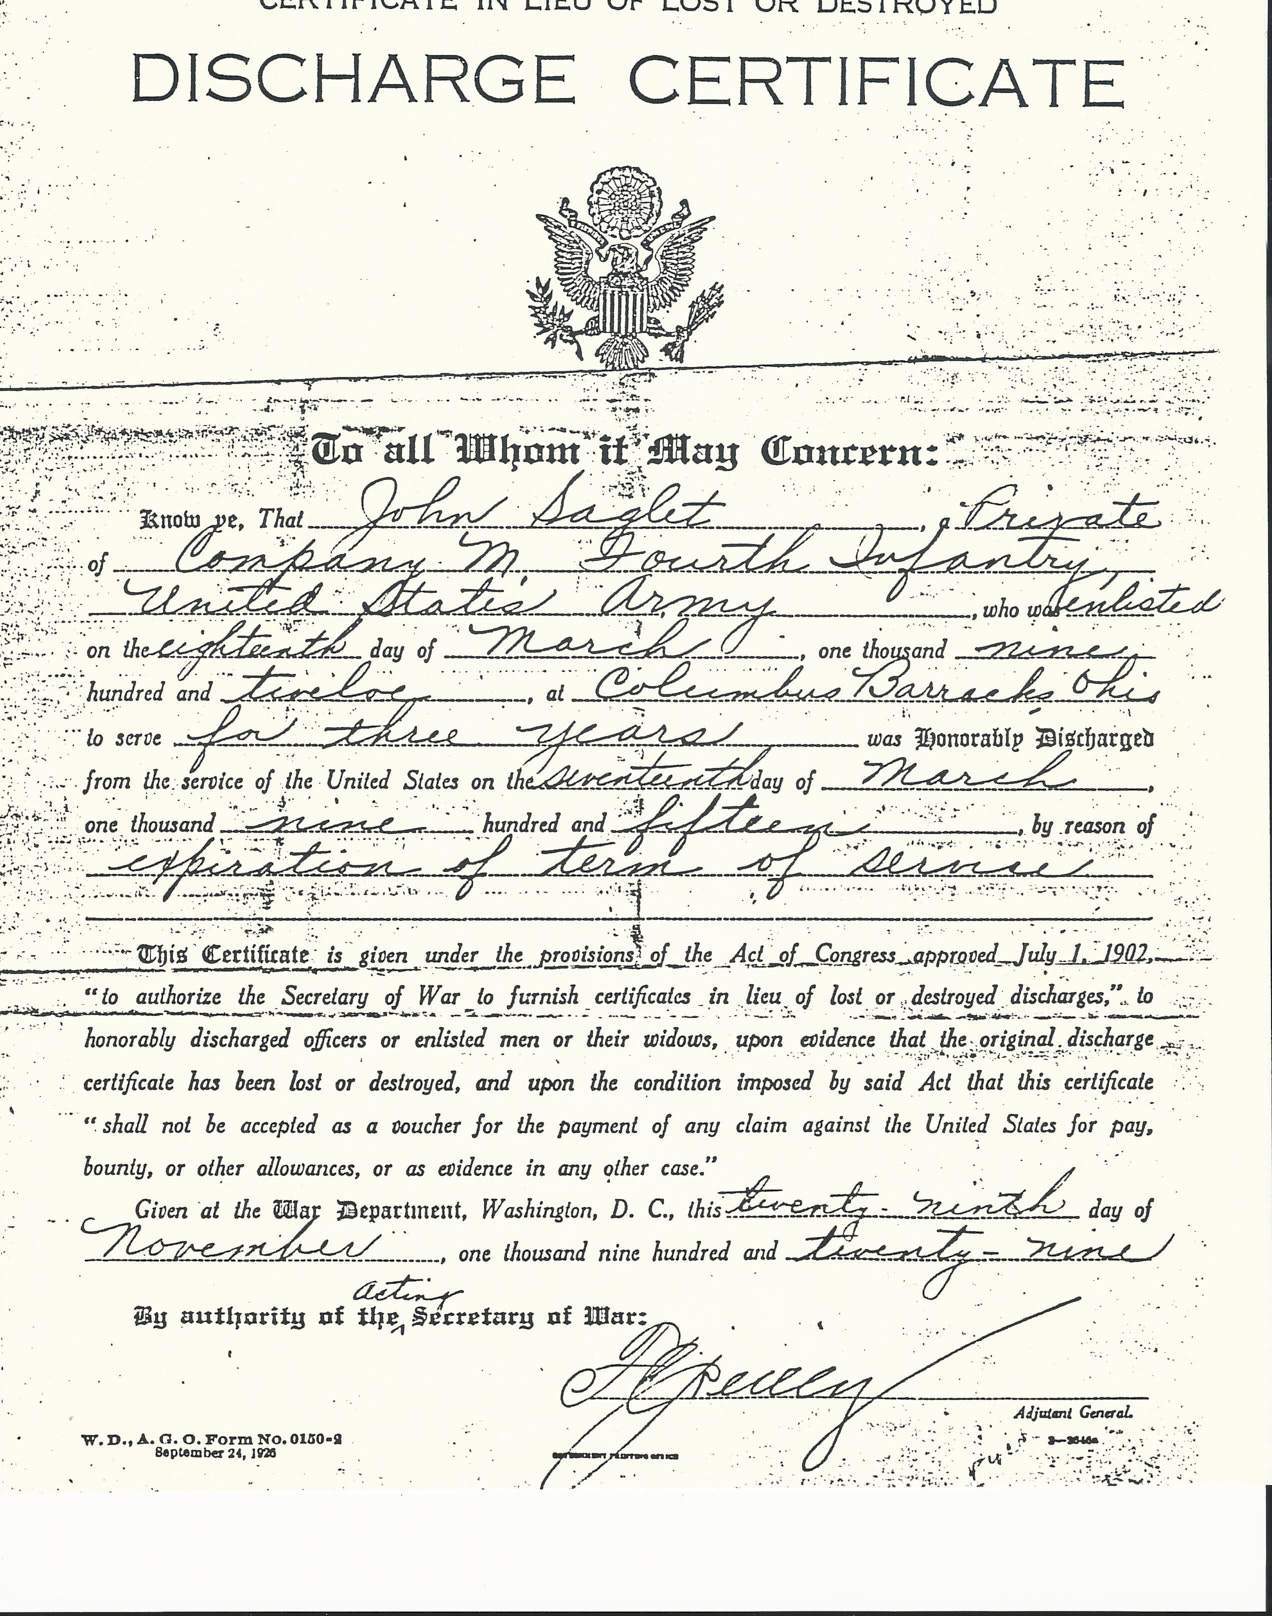 CERTIFICATE IN LIEU OF LOST OR DESTROYED
DISCHARGE CERTIFICATE
To all Whom it May Concern:
Know ye, That John Saglet, a Private
of Company M. Fourth Infantry,
United States Army, who was enlisted
on the eighteenth day of March, one thousand nine
hundred and twelve, at Columbus Barracks, Ohio
to serve for three years was Honorably Discharged
from the service of the United States on the seventeenth day of March,
one thousand nine hundred and fifteen, by reason of
expiration of term of service
This Certificate is given under the provisions of the Act of Congress approved July 1, 1902,
“to authorize the Secretary of War to furnish certificates in lieu of lost or destroyed discharges,” to
honorably discharged officers or enlisted men or their widows, upon evidence that the original discharge
certificate has been lost or destroyed, and upon the condition imposed by said Act that this certificate
“shall not be accepted as a voucher for the payment of any claim against the United States for pay,
bounty, or other allowances, or as evidence in any other case.”
Given at the War Department, Washington, D. C., this twenty-ninth day of
November, one thousand nine hundred and twenty-nine
acting
By authority of the Secretary of War:
Adjutant General.
W. D., A. G. O. Form No. 0150-2
September 24, 1926
GOVERNMENT PRINTING OFFICE